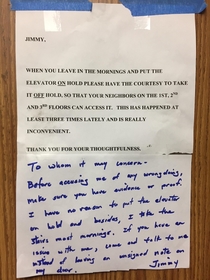 JIMMY,
WHEN YOU LEAVE IN THE MORNINGS AND PUT THE
ELEVATOR ON HOLD PLEASE HAVE THE COURTESY TO TAKE
IT OFF HOLD, SO THAT YOUR NEIGHBORS ON THE 1ST, 2ND
AND 3RD FLOORS CAN ACCESS IT. THIS HAS HAPPENED AT
LEASE THREE TIMES LATELY AND IS REALLY
INCONVENIENT.
THANK YOU FOR YOUR THOUGHTFULNESS.
To whom it may concern-
Before accusing me of any wrongdoing,
make sure you have evidence or proof.
I have no reason to put the elevator
on hold and besides, I take the
stairs most mornings. If you have an
issue with me, come and talk to me
instead of leaving an unsigned note on
my door. Jimmy